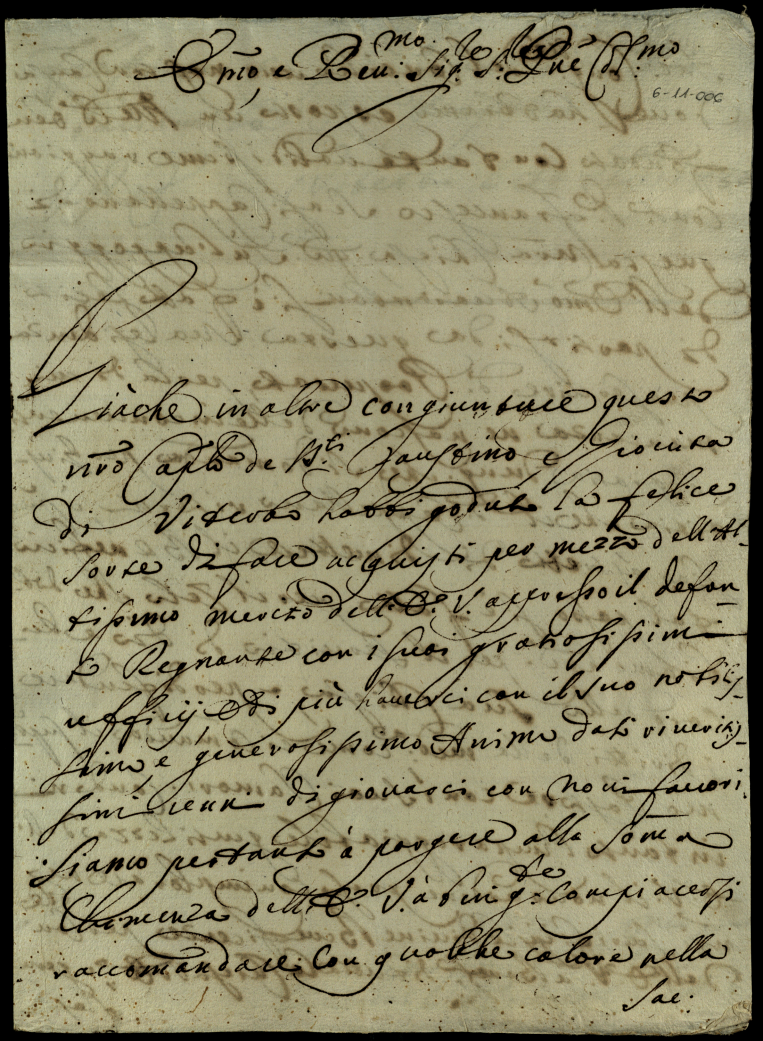 Em̃o, e Reu:mo Sig:re S:re Pn̄e Col:mo
6-11-006
Giàche in altre congiunture questo
nr̃o Capto de S:ti Faustino, e Giouita
di Viterbo habbi goduto la felice
sorte di fare acquisti per mezzo dell'Al-
tissimo merito dell'E. V. appresso il defon-
to Regnante con i suoi gratiosissimi
ufficij, e di più hauerci con il suo nobilis-
simo, e generosissimo Animo dati riueritis-
simi cenni di giouarci con noui fauori
siamo pertanto à porgere alla som̃a
Clemenza dell'E. V. à benig:te compiacersi
raccomandare con qualche calore nella
Sac.